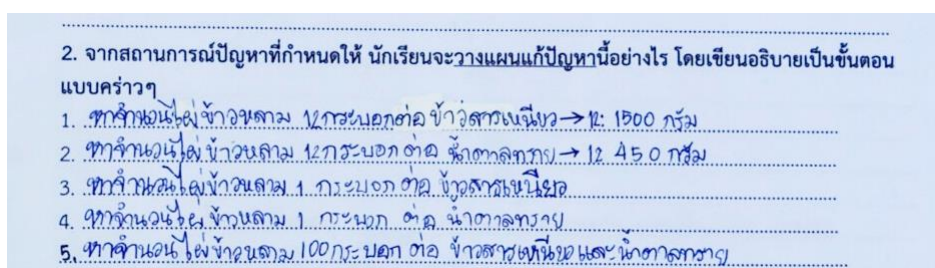 2. จากสถานการณ์ปัญหาที่กำหนดให้ นักเรียนจะวางแผนแก้ปัญหานี้อย่างไร โดยเขียนอธิบายเป็นขั้นตอน
แบบคร่าวๆ
1. หาจำนวนไผ่ข้าวหลาม 12 กระบอกต่อ ข้าวสารเหนียว → 12: 1500 กรัม
2. หาจำนวนไผ่ข้าวหลาม 12 กระบอก ต่อ น้ำตาลทราย → 12 450 กรัม
3. หาจำนวนไผ่ข้าวหลาม 1 กระบอก ต่อ ข้าวสารเหนียว
4. หาจำนวนไผ่ ข้าวหลาม 1 กระบอก ต่อ น้ำตาลทราย
5. หาจำนวน ไผ่ข้าวหลาม 100 กระบอก ต่อ ข้าวสารเหนียวและน้ำตาลทราย